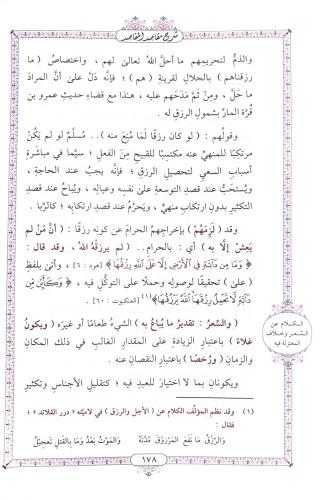 شرح مقاصد المقاصد
والذمُّ لتحريمِهم ما أحلَّ اللهُ تعالىٰ لهم ، واختصاصُ ( ما
رزقناهم ) بالحلالِ لقرينةِ ( هم ) ؛ فإنَّه دلَّ علىٰ أنَّ المرادَ
ما حلَّ ، ومِنْ ثَمَّ مَدَحَهم عليه ، هـٰذا مع قضاءِ حديثِ عمرِو بنِ
قُرَّةَ المارِّ بشمولِ الرزقِ له .
وقولُهم : ( لو كان رزقًا لَمَا مُنِعَ منه )... مُسلَّمٌ لو لم يكُنْ
مرتكِبًا للمنهيِّ عنه مكتسِبًا للقبيحِ مِنَ الفعلِ ؛ سيَّما في مباشرةِ
أسبابِ السعيِ لتحصيلِ الرزقِ ؛ فإنَّه يجبُ عند الحاجةِ ،
ويُستحَبُّ عند قصدِ التوسعةِ علىٰ نفسِه وعيالِه ، ويُباحُ عند قصدِ
التكثيرِ بدونِ ارتكابِ منهيٍّ ، ويَحرُمُ عند قصدِ ارتكابِه ؛ كالرِّبا .
وقد ( لَزِمَهُمْ ) بإخراجِهمُ الحرامَ عن كونِه رزقًا : ( أنَّ مَنْ لم
يَعِشْ إلَّا به ) أي : بالحرامِ... ( لم يرزقْهُ اللهُ ، وقد قال :
﴿ وَمَا مِن دَآبَّةٍ فِي ٱلْأَرْضِ إِلَّا عَلَى ٱللَّهِ رِزْقُهَا ﴾ [هود : ٦] ، وأتىٰ بلفظِ
( علىٰ ) تحقيقًا لوصولِه وحملًا على التوكُّلِ فيه ، ﴿ وَكَأَيِّن مِّن
دَآبَّةٍ لَّا تَحْمِلُ رِزْقَهَا ٱللَّهُ يَرْزُقُهَا ﴾(١) [العنكبوت : ٦٠] .
الكلام عن السِّعر وخلاف المعتزلة فيه
( والسِّعْرُ : تقديرُ ما يُباعُ به ) الشيءُ طعامًا أو غيرَه ( ويكونُ
غلاءً ) باعتبارِ الزيادةِ على المقدارِ الغالبِ في ذلك المكانِ
والزمانِ ( ورُخصًا ) باعتبارِ النقصانِ عنه .
ويكونانِ بما لا اختيارَ للعبدِ فيه ؛ كتقليلِ الأجناسِ وتكثيرِ
(١) وقد نظم المؤلِّف الكلام عن ( الأجل والرزق ) في لاميَّته « درر القلائد » ؛
فقال :
والرِّزْقُ مَا نَفَعَ المَرْزُوقَ مُدَّتَهُ والمَوْتُ بَعْدُ وَمَا بِالقَتْلِ تَعْجِيلُ
١٧٨